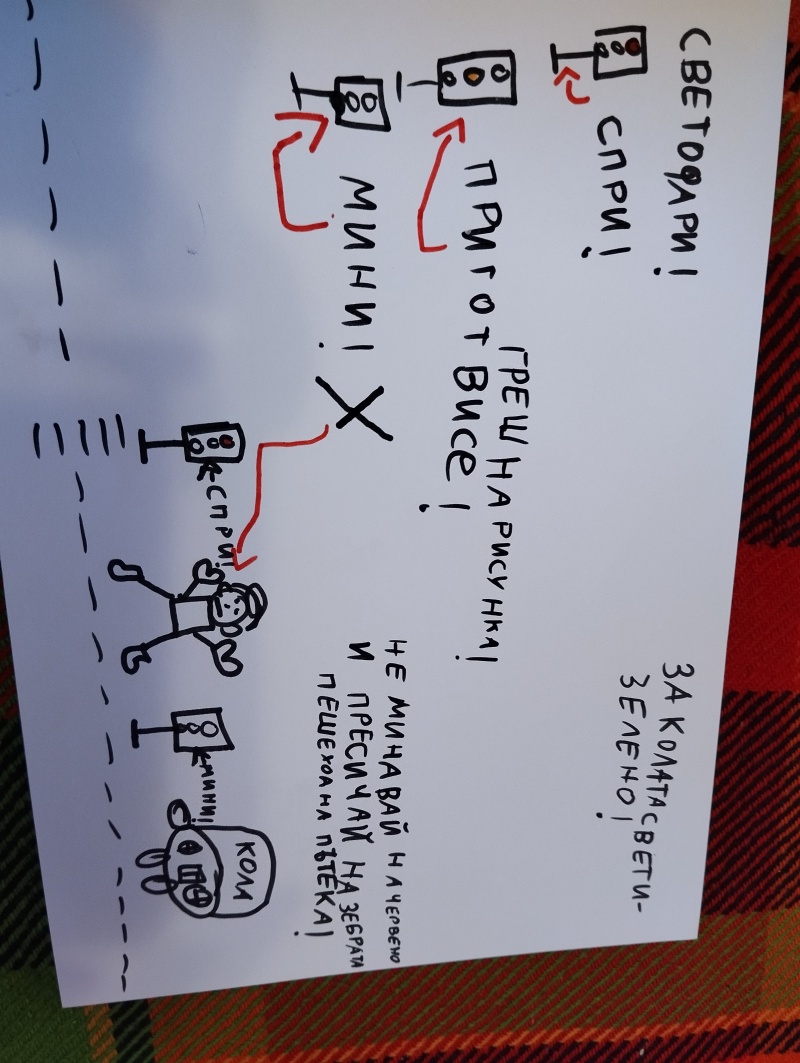 СВЕТОФАРИ!
СПРИ!
ПРИГОТВИСЕ!
МИНИ!
ГРЕШНА РИСУНКА!
ЗА КОЛАТА СВЕТИ-
ЗЕЛЕНО!
НЕ МИНАВАЙ НА ЧЕРВЕНО
И ПРЕСИЧАЙ НА ЗЕБРАТА
ПЕШЕХОДНА ПЪТЕКА!
СПРИ!
МИНИ!
КОЛА